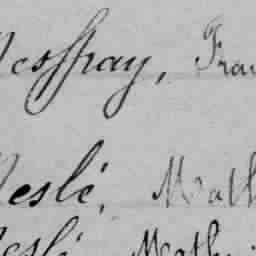 Nesfray, Fran
Neslé, Math
Neslé, Math